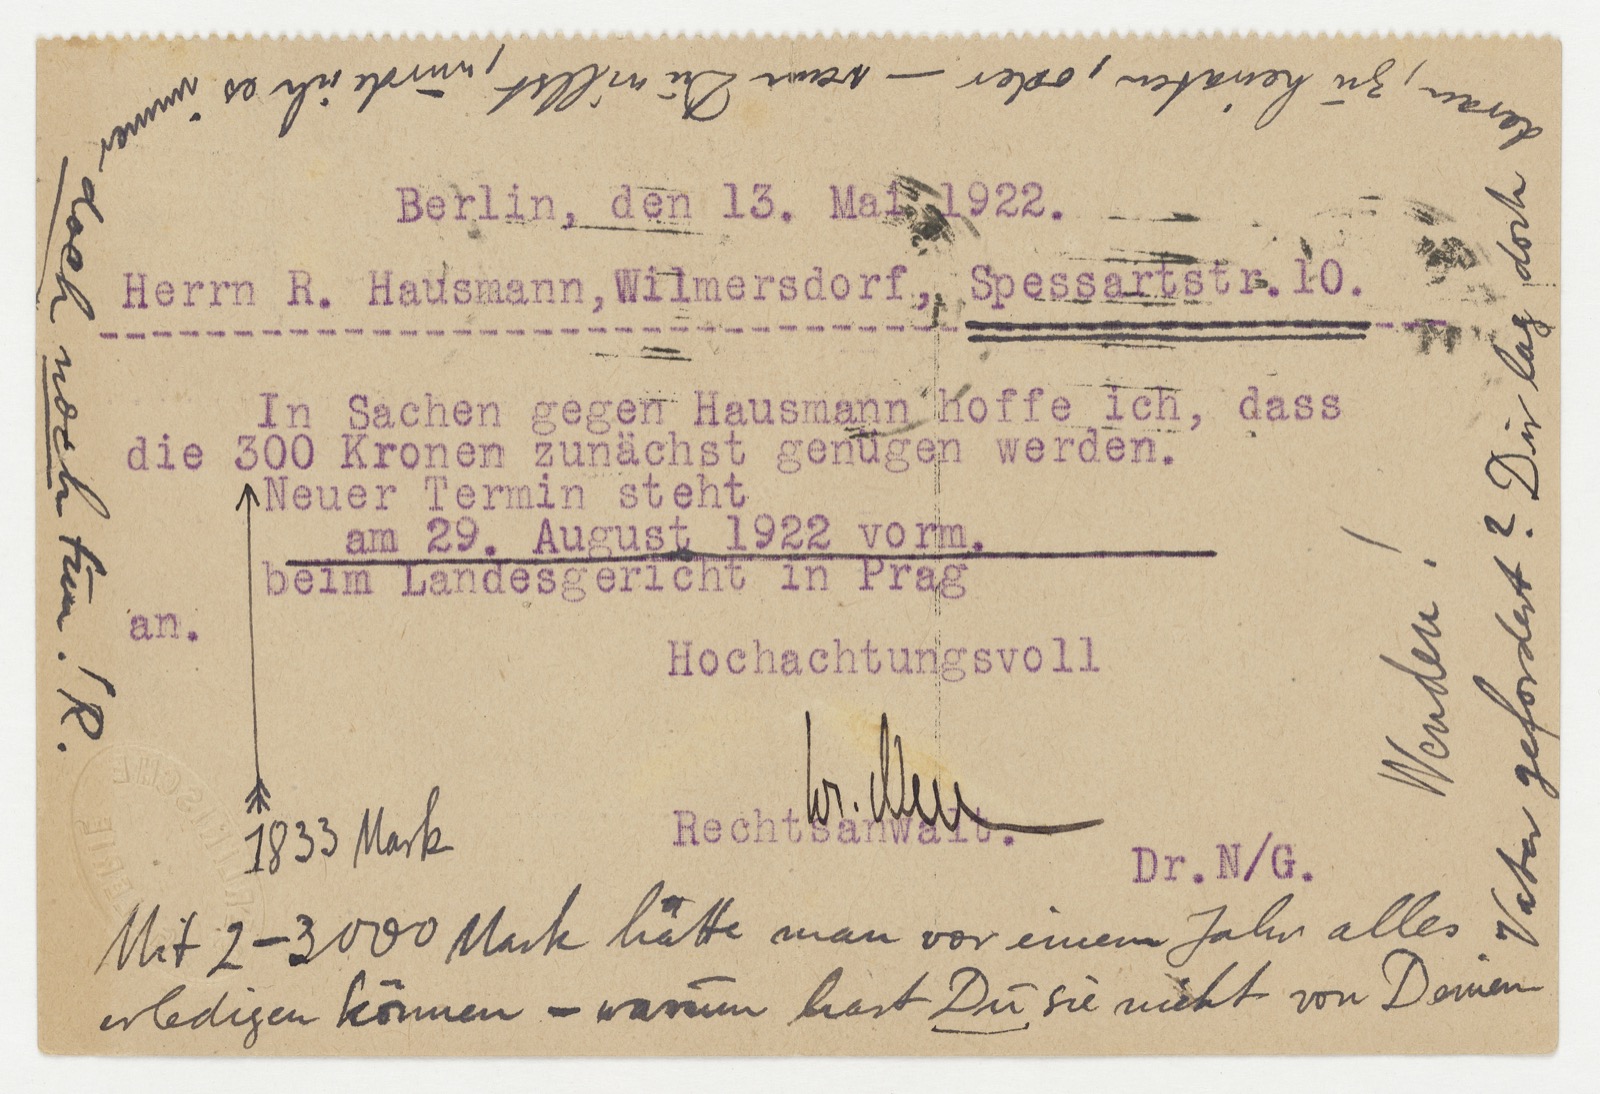 Berlin, den 13. Mai 1922.
Herrn R. Hausmann, Wilmersdorf, Spessartstr. 10.
In Sachen gegen Hausmann hoffe ich, dass
die 300 Kronen zunächst genügen werden.
Neuer Termin steht
am 29. August 1922 vorm.
beim Landesgericht in Prag
an.
Hochachtungsvoll
Rechtsanwalt.
Dr.N/G.
1833 Mark
Mit 2–3000 Mark hätte man vor einem Jahr alles
erledigen können – warum hast Du sie nicht von Deinem
Vater gefordert? Dir lag doch
daran, zu heiraten, oder – wenn Du willst, würde ich es immer
doch noch tun! R.
Wenden!